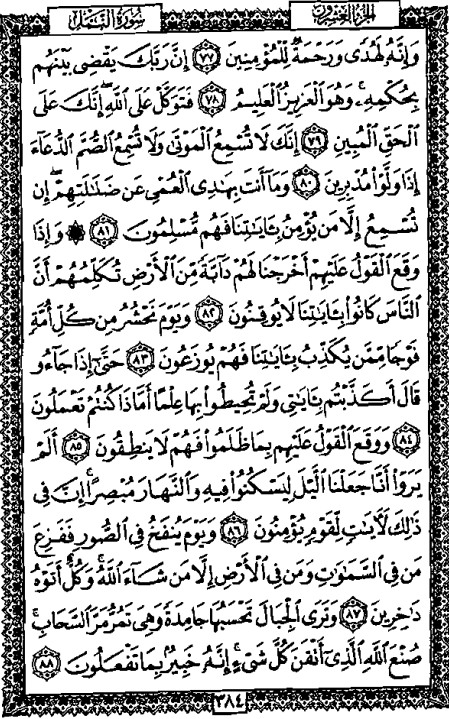 الجزء العشرون سورة النمل
وَإِنَّهُۥ لَهُدًى وَرَحْمَةٌ لِّلْمُؤْمِنِينَ ٧٧ إِنَّ رَبَّكَ يَقْضِى بَيْنَهُم
بِحُكْمِهِۦ وَهُوَ ٱلْعَزِيزُ ٱلْعَلِيمُ ٧٨ فَتَوَكَّلْ عَلَى ٱللَّهِ إِنَّكَ عَلَى
ٱلْحَقِّ ٱلْمُبِينِ ٧٩ إِنَّكَ لَا تُسْمِعُ ٱلْمَوْتَىٰ وَلَا تُسْمِعُ ٱلصُّمَّ ٱلدُّعَآءَ
إِذَا وَلَّوْا۟ مُدْبِرِينَ ٨٠ وَمَآ أَنتَ بِهَٰدِى ٱلْعُمْىِ عَن ضَلَٰلَتِهِمْ إِن
تُسْمِعُ إِلَّا مَن يُؤْمِنُ بِـَٔايَٰتِنَا فَهُم مُّسْلِمُونَ ٨١ ۞ وَإِذَا
وَقَعَ ٱلْقَوْلُ عَلَيْهِمْ أَخْرَجْنَا لَهُمْ دَآبَّةً مِّنَ ٱلْأَرْضِ تُكَلِّمُهُمْ أَنَّ
ٱلنَّاسَ كَانُوا۟ بِـَٔايَٰتِنَا لَا يُوقِنُونَ ٨٢ وَيَوْمَ نَحْشُرُ مِن كُلِّ أُمَّةٍ
فَوْجًا مِّمَّن يُكَذِّبُ بِـَٔايَٰتِنَا فَهُمْ يُوزَعُونَ ٨٣ حَتَّىٰٓ إِذَا جَآءُو
قَالَ أَكَذَّبْتُم بِـَٔايَٰتِى وَلَمْ تُحِيطُوا۟ بِهَا عِلْمًا أَمَّاذَا كُنتُمْ تَعْمَلُونَ
٨٤ وَوَقَعَ ٱلْقَوْلُ عَلَيْهِم بِمَا ظَلَمُوا۟ فَهُمْ لَا يَنطِقُونَ ٨٥ أَلَمْ
يَرَوْا۟ أَنَّا جَعَلْنَا ٱلَّيْلَ لِيَسْكُنُوا۟ فِيهِ وَٱلنَّهَارَ مُبْصِرًا إِنَّ فِى
ذَٰلِكَ لَـَٔايَٰتٍ لِّقَوْمٍ يُؤْمِنُونَ ٨٦ وَيَوْمَ يُنفَخُ فِى ٱلصُّورِ فَفَزِعَ
مَن فِى ٱلسَّمَٰوَٰتِ وَمَن فِى ٱلْأَرْضِ إِلَّا مَن شَآءَ ٱللَّهُ وَكُلٌّ أَتَوْهُ
دَٰخِرِينَ ٨٧ وَتَرَى ٱلْجِبَالَ تَحْسَبُهَا جَامِدَةً وَهِىَ تَمُرُّ مَرَّ ٱلسَّحَابِ
صُنْعَ ٱللَّهِ ٱلَّذِىٓ أَتْقَنَ كُلَّ شَىْءٍ إِنَّهُۥ خَبِيرٌۢ بِمَا تَفْعَلُونَ ٨٨
٣٨٤